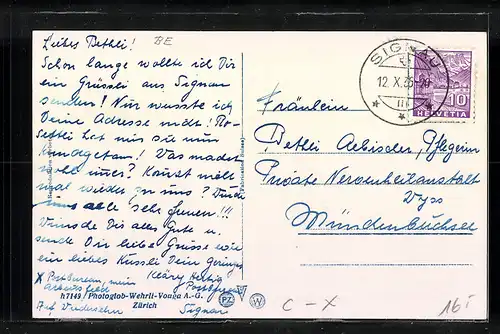 Liebes Bethli! BE
Schon lange wollte ich Dir
ein Grüssli aus Signau
senden! Nur wusste ich
Deine Adresse nicht! Ro-
settli hat mir sie nun
kundgetan! Was machst
wohl immer? Kannst nicht
mal wieder zu uns? Würde
uns alle sehr freuen!!!
Wünsche Dir alles Gute u.
sende Dir liebe Grüsse wie
ein liebes Küssli Dein
Kläry Hertig
Postbureau
Signau
h7149 / Photoglob-Wehrli-Vouga A.-G.
Zürich
PZ W
SIGNAU
12.X.35-20
III
10
HELVETIA
Fräulein
Bethli Aebischer, Pflegerin
Private Nervenheilanstalt
Wyss
Münchenbuchsee
C - X
16.-